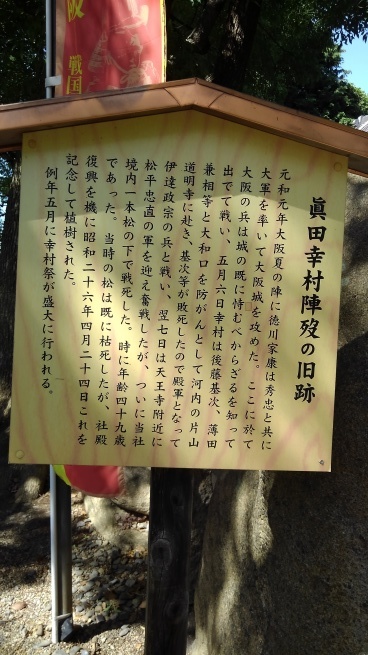 眞田幸村陣歿の旧跡
元和元年大阪夏の陣に徳川家康は秀忠と共に
大軍を率いて大阪城を攻めた。ここに於て
大阪の兵は城の既に恃むべからざるを知って
出でて戦い、五月六日幸村は後藤基次、薄田
兼相等と大和口を防がんとして河内の片山
道明寺に赴き、基次等が敗死したので殿軍となって
伊達政宗の兵と戦い、翌七日は天王寺附近に
松平忠直の軍を迎え奮戦したが、ついに当社
境内一本松の下で戦死した。時に年齢四十九歳
であった。当時の松は既に枯死したが、社殿
復興を機に昭和二十六年四月二十四日これを
記念して植樹された。
例年五月に幸村祭が盛大に行われる。
阪
戦国